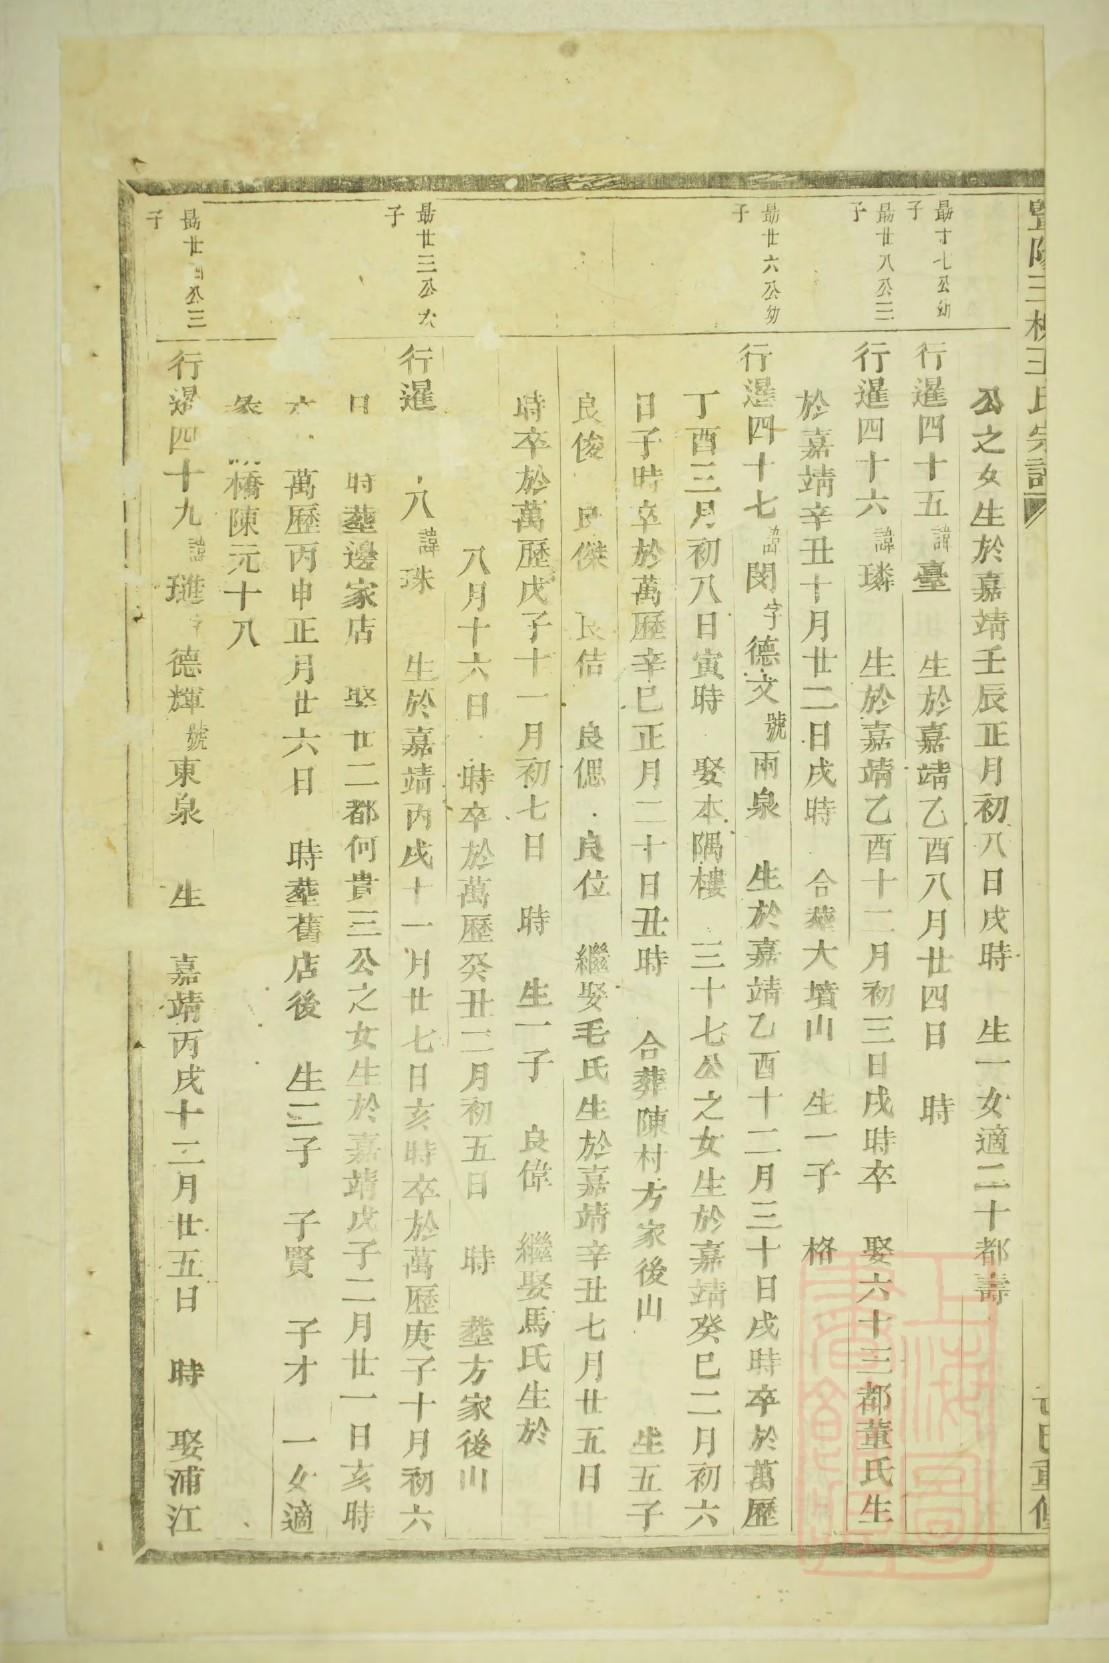 暨陽王氏宗譜
公之女生於嘉靖壬辰正月初八日戌時 生一女適二十都壽
勗十七公幼子
行暹四十五諱臺 生於嘉靖乙酉八月廿四日 時
勗廿八公三子
行暹四十六諱璘 生於嘉靖乙酉十二月初三日戌時卒 娶六十三都董氏生
於嘉靖辛丑十月廿二日戌時 合塟大墳山 生一子 格
勗廿六公幼子
行暹四十七諱閔字德文號兩泉 生於嘉靖乙酉十二月三十日戌時卒於萬歷
丁酉三月初八日寅時 娶本隅樓 三十七公之女生於嘉靖癸巳二月初六
日子時卒於萬歷辛巳正月二十日丑時 合葬陳村方家後山 生五子
良俊 良傑 良佶 良偲 良位 繼娶毛氏生於嘉靖辛丑七月廿五日
時卒於萬歷戊子十一月初七日 時 生一子 良偉 繼娶馬氏生於
八月十六日 時卒於萬歷癸丑二月初五日 時 塟方家後山
勗廿三公次子
行暹 八諱珠 生於嘉靖丙戌十一月廿七日亥時卒於萬歷庚子十月初六
日 時塟邊家店 娶廿二都何貴三公之女生於嘉靖戊子二月廿一日亥時
萬歷丙申正月廿六日 時塟舊店後 生二子 子賢 子才 一女適
橋陳元十八
勗廿 公三子
行暹四十九諱璡字德輝號東泉 生 嘉靖丙戌十二月廿五日 時 娶浦江
上海圖書館藏